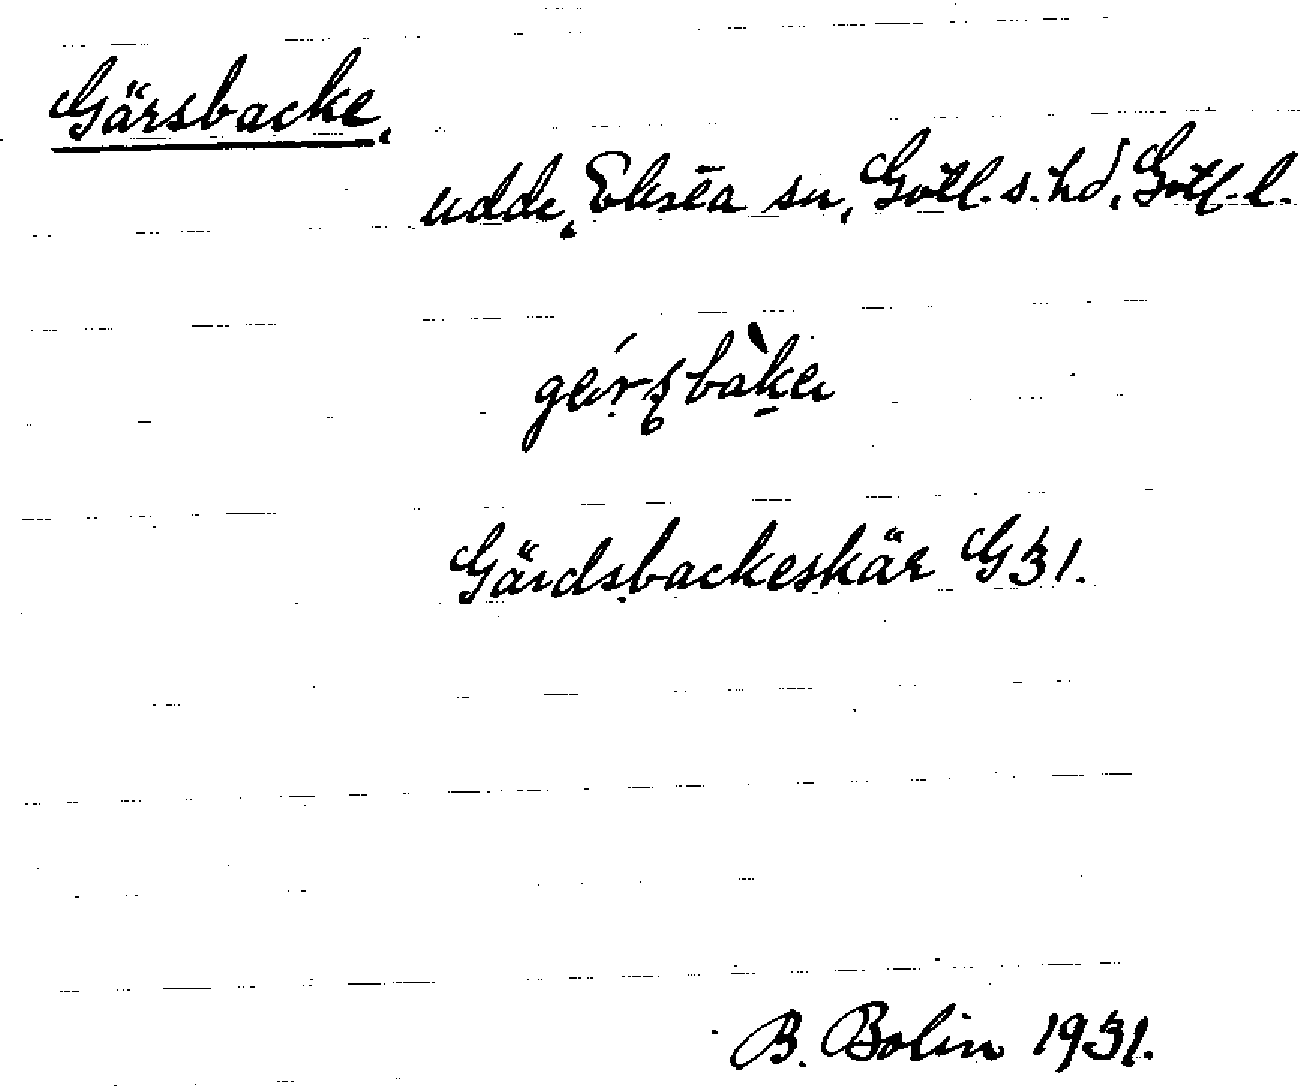 Gärsbacke,
udde, Eksta sn, Gotl. s. hd, Gotl. l.
Gärdsbackeskär G 31.
B. Bolin 1931.